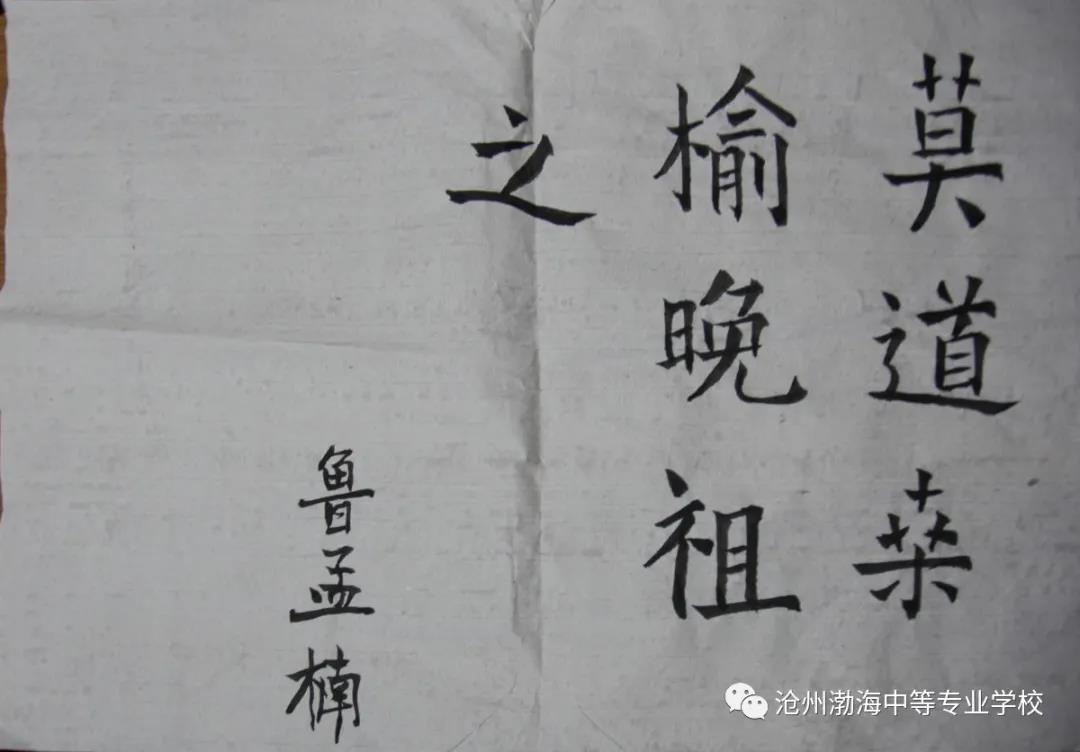 莫道桒
榆晚祖
之
鲁孟楠
沧州渤海中等专业学校